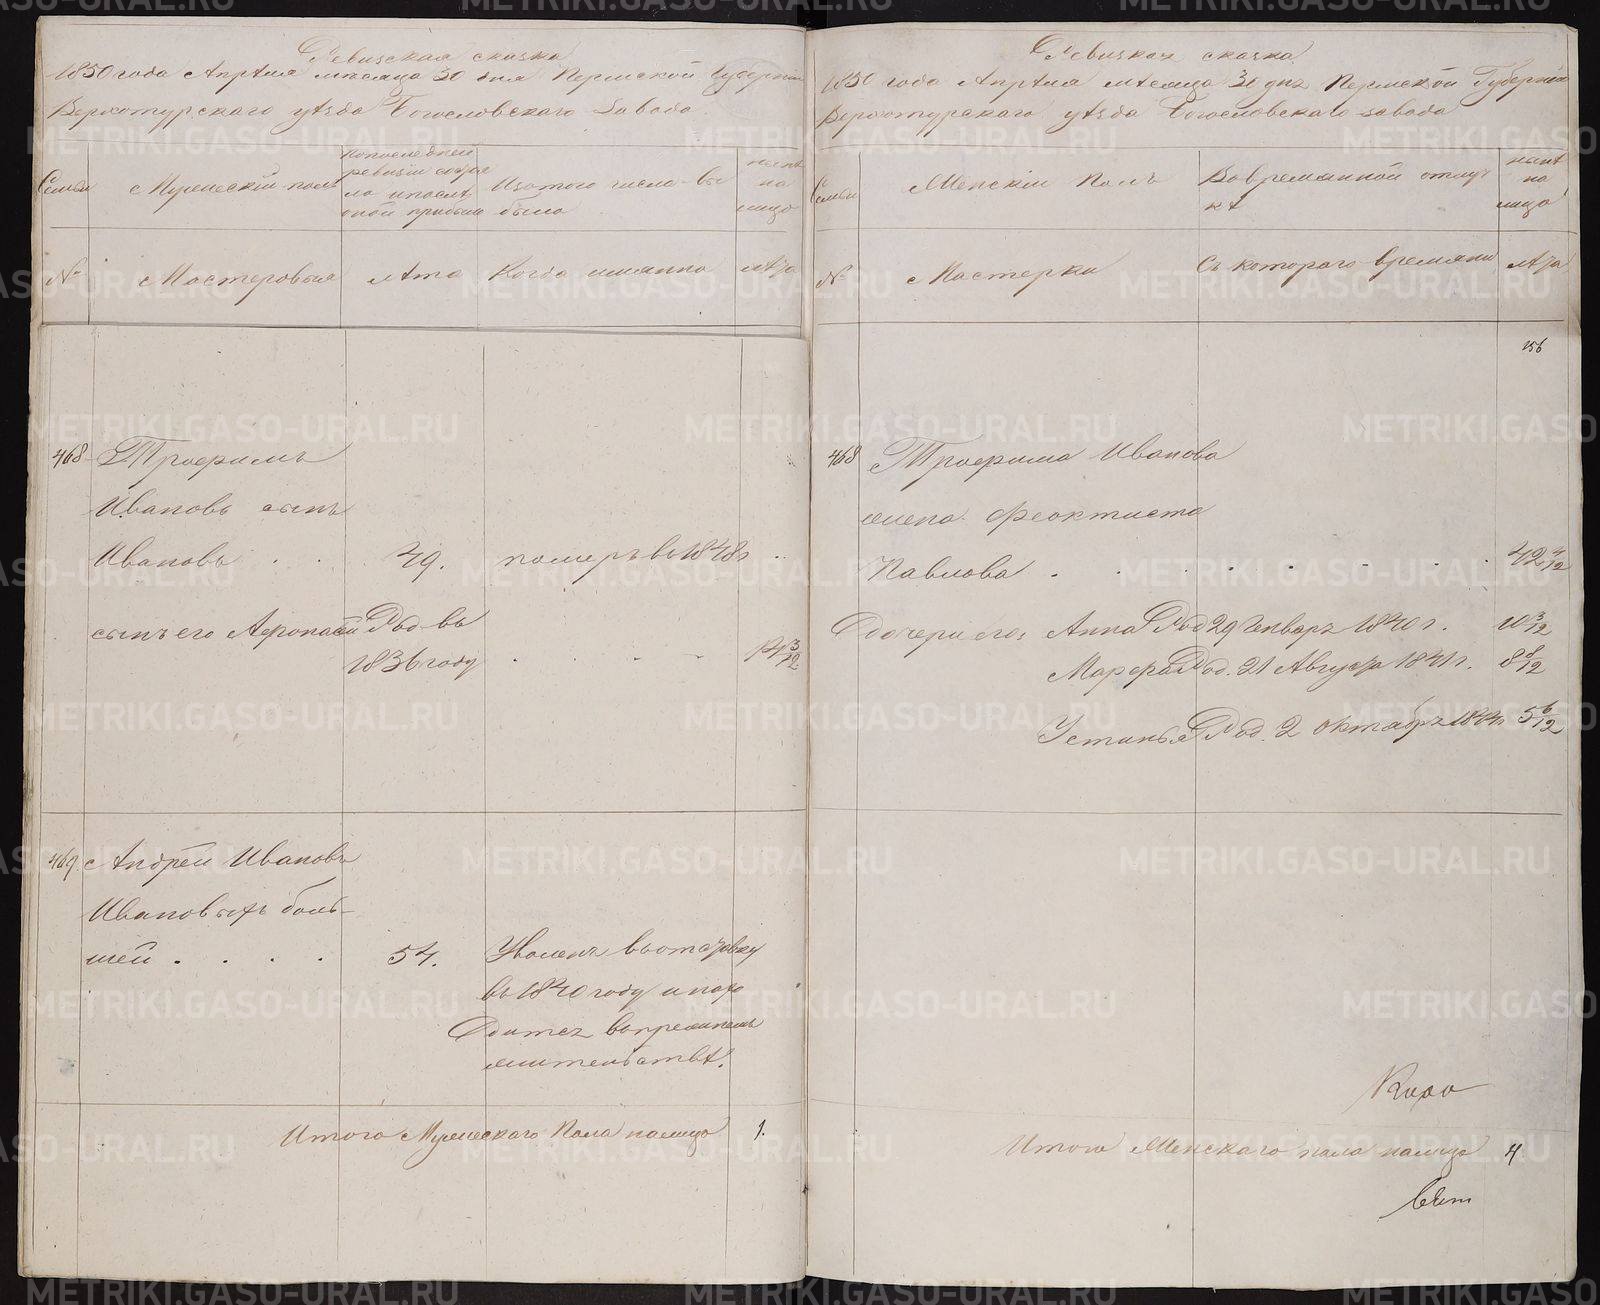 Ревизская сказка
1850 года Апрѣля мѣсяца 30 дня Пермской Губерніи
Верхотурскаго уѣзда Богословскаго завода
Семьи
Мужескій полъ
По последней
ревизіи состоя
ло и послѣ
оной прибыло
Изъ того числа вы
было
нынѣ
на
лицо
№
Мастеровыя
Лѣта
Когда имянно
лѣта
468
Трофимъ
Ивановъ сынъ
Ивановъ . . 49. померъ въ 1848 г ..
сынъ его Афонасій Род. въ
1836 году . . . . 14 3/12
469. Андрей Ивановъ
Ивановыхъ боль-
шей . . . . 54. Уволенъ въ отставку
въ 1840 году и нахо
дится въ
жительствѣ.
Итого Мужескаго Пола налицо 1.
Ревизская сказка
1850 года Апрѣля мѣсяца 30 дня Пермской Губерніи
Верхотурскаго уѣзда Богословскаго завода
Семьи
Женскій Полъ
Во временной отлуч
кѣ
нынѣ
на
лицо
№
Мастерки
Съ котораго времяни
лѣта
156
468 Трофима Иванова
жена Феоктиста
Павлова . . . . . . . . 42 4/12
Дочери его, Анна Род 29 Генваря 1840 г. 10 3/12
Марфа Род. 21 Августа 1841 г. 8 8/12
Устинья Род. 2 октября 1844 г 5 6/12
Итого Женскаго пола налицо 4
METRIKI.GASO-URAL.RU